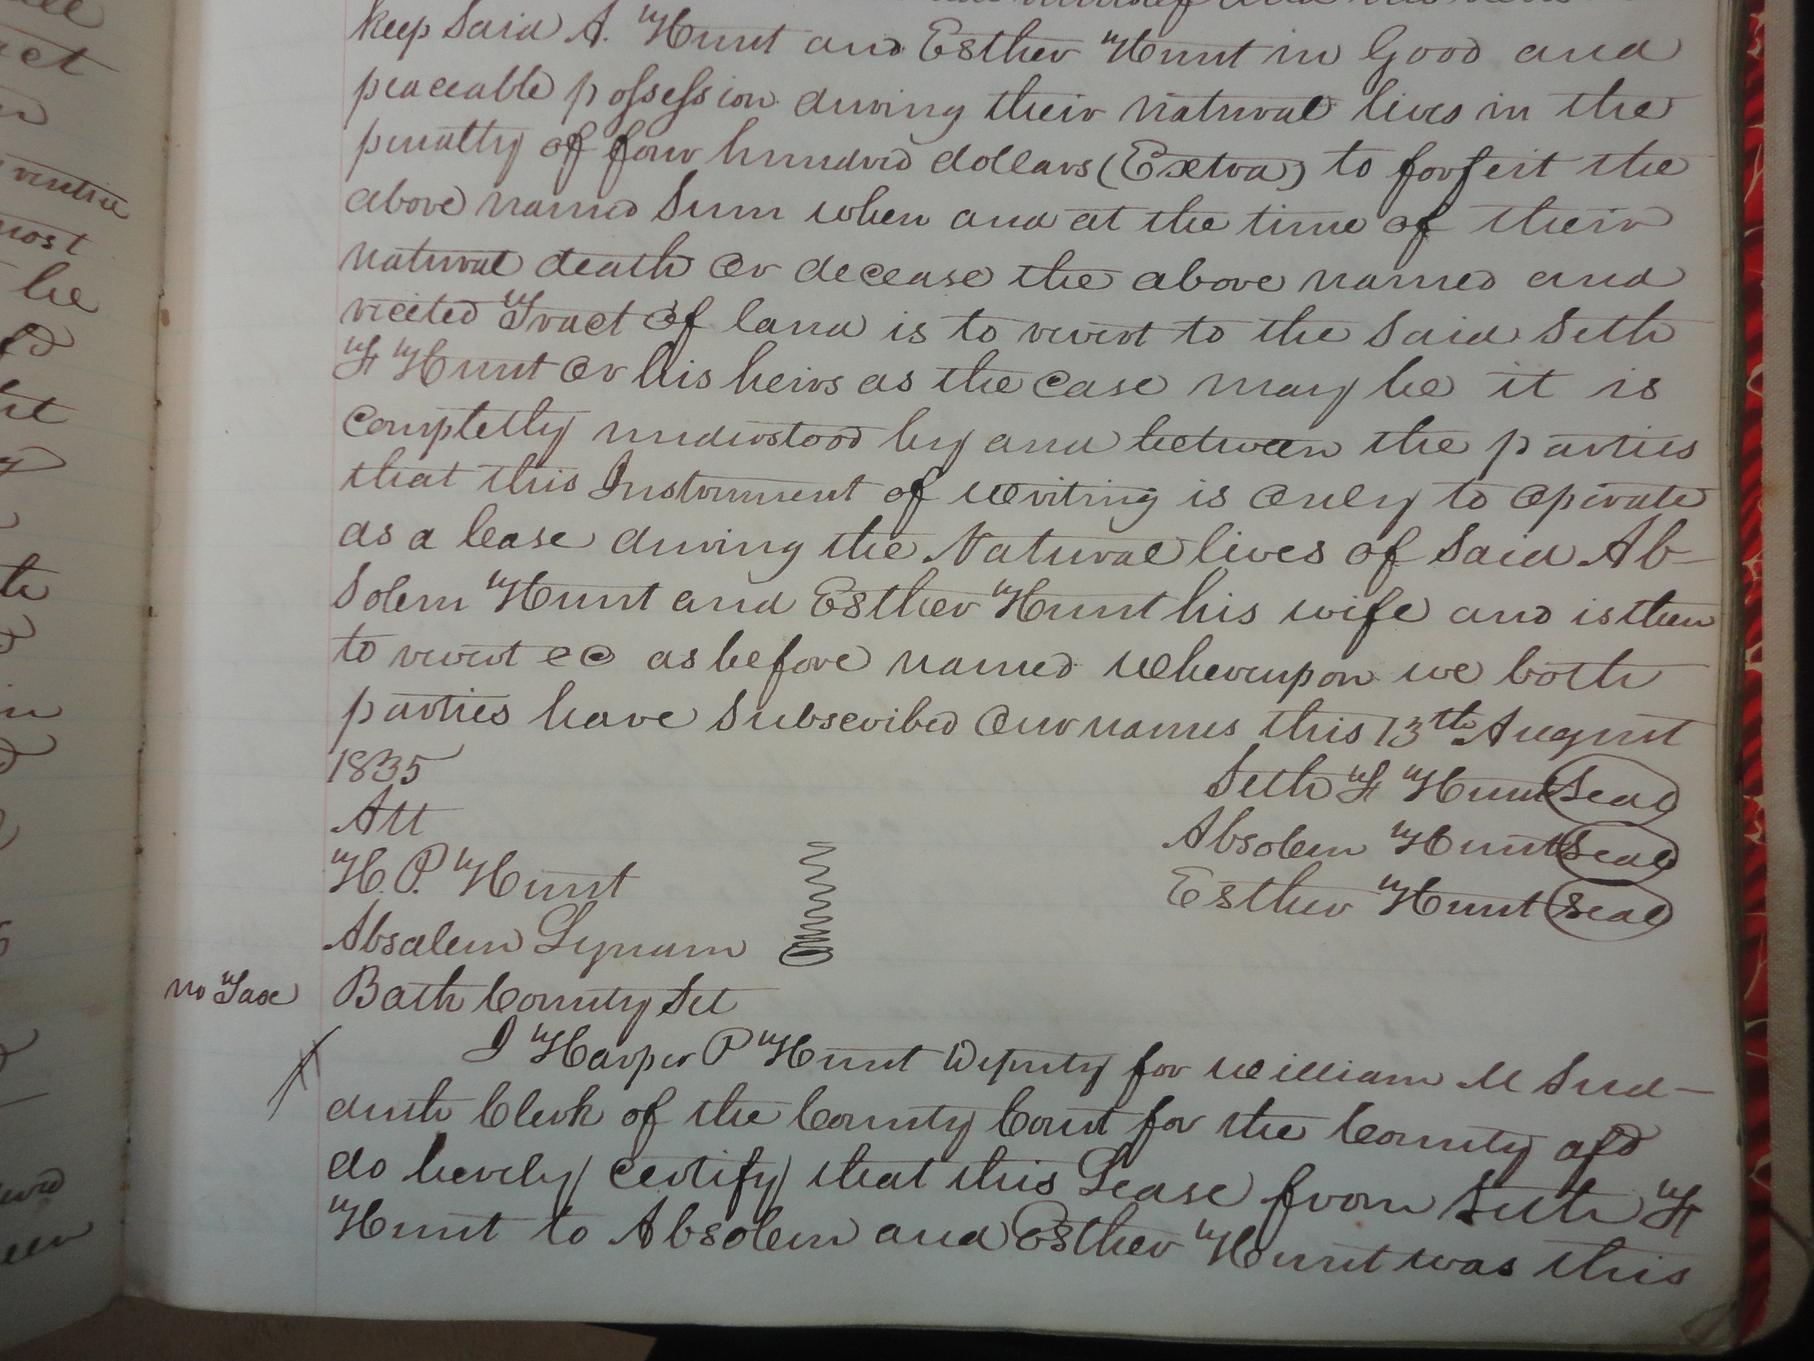 keep Said A. Hunt and Esther Hunt in Good and
peaceable possession during their natural lives in the
penalty of four hundred dollars (Extra) to forfeit the
above named Sum when and at the time of their
natural death or decease the above named and
recited Tract of land is to revert to the Said Seth
H Hunt or his heirs as the case may be it is
completly understood by and between the parties
that this Instrument of writing is only to operate
as a lease during the Natural lives of Said Ab-
Solem Hunt and Esther Hunt his wife and is then
to revert &c as before named Whereupon we both
parties have Subscribed our names this 13th August
1835
Seth H Hunt Seal
Att
Absolem Hunt Seal
H. P. Hunt
Esther Hunt Seal
Absalem Lynam
no Tax
Bath County Sct
I Harper P Hunt Deputy for William M Sud-
duth Clerk of the County Court for the County afd
do hereby certify that this Lease from Seth H
Hunt to Absolem and Esther Hunt was this